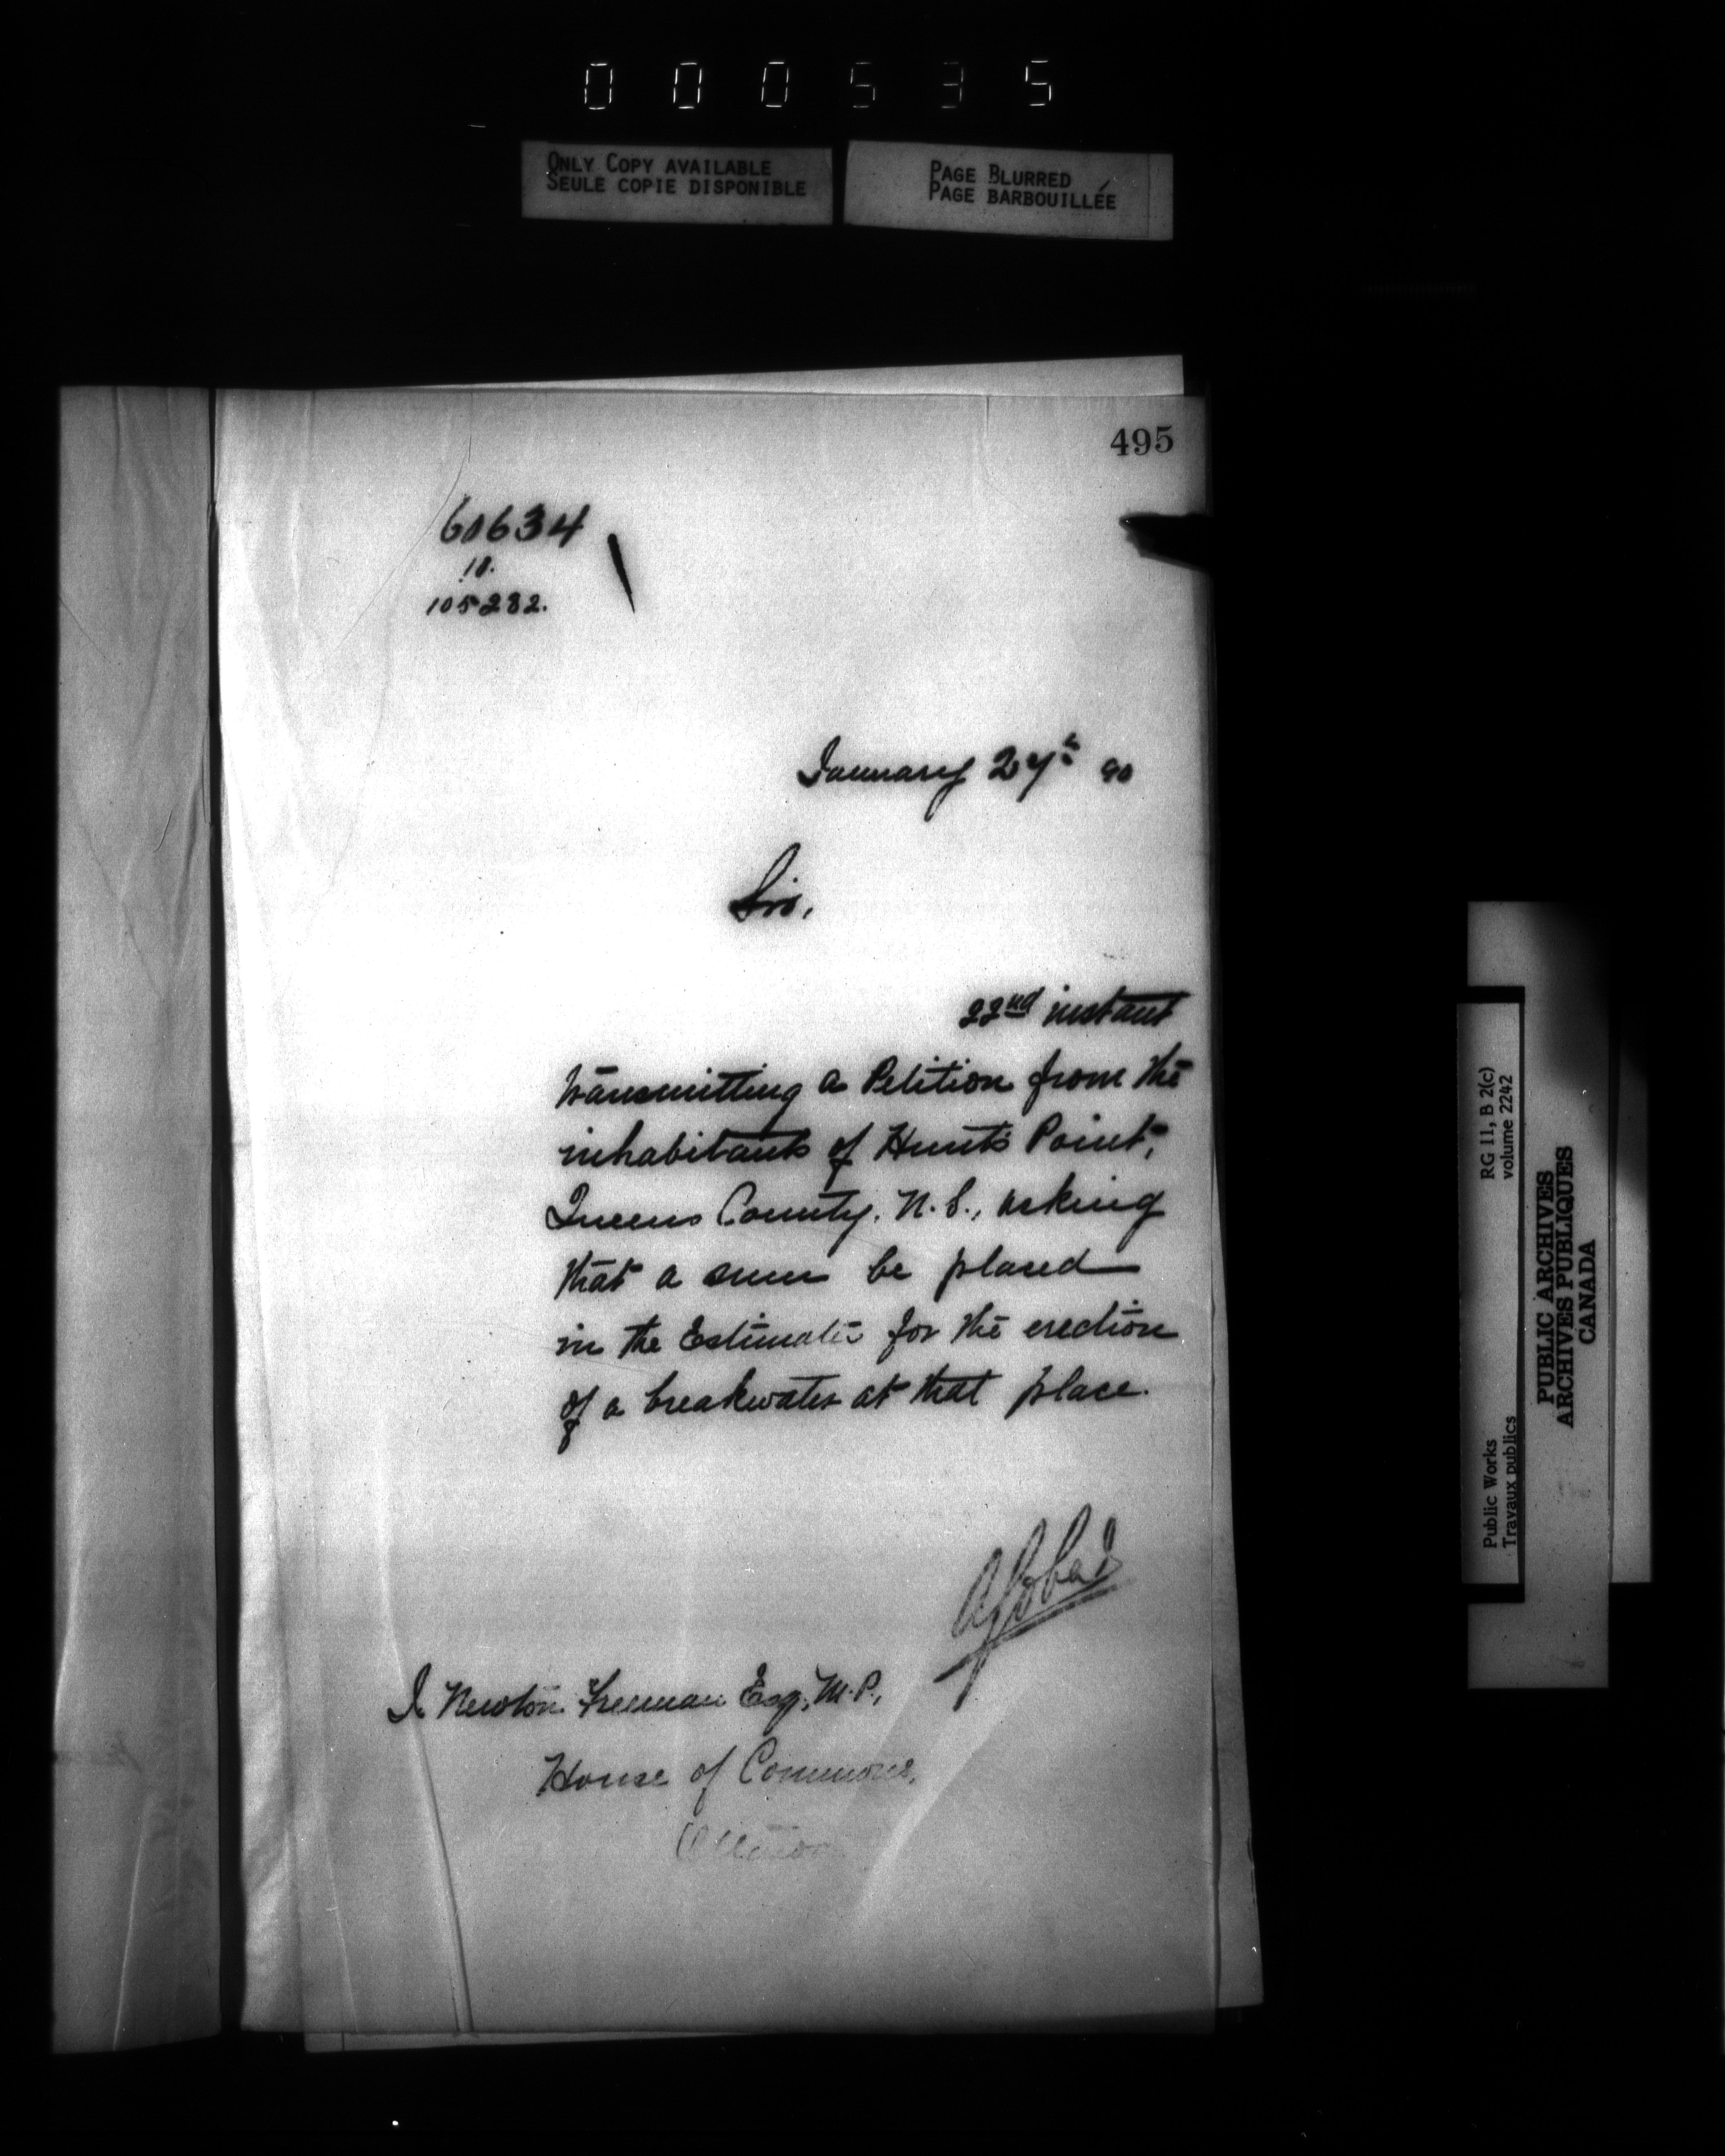 000535
ONLY COPY AVAILABLE
SEULE COPIE DISPONIBLE
PAGE BLURRED
PAGE BARBOUILLÉE
495
60634
18.
105282.
January 27th 90
Sir,
22nd instant
transmitting a Petition from the
inhabitants of Hunts Point,
Queens County, N.S., asking
that a sum be placed
in the Estimates for the erection
of a breakwater at that place.
Newton Freeman Esq, M.P.,
House of Commons,
Ottawa
Public Works
Travaux publics
RG 11, B 2(c)
volume 2242
PUBLIC ARCHIVES
ARCHIVES PUBLIQUES
CANADA